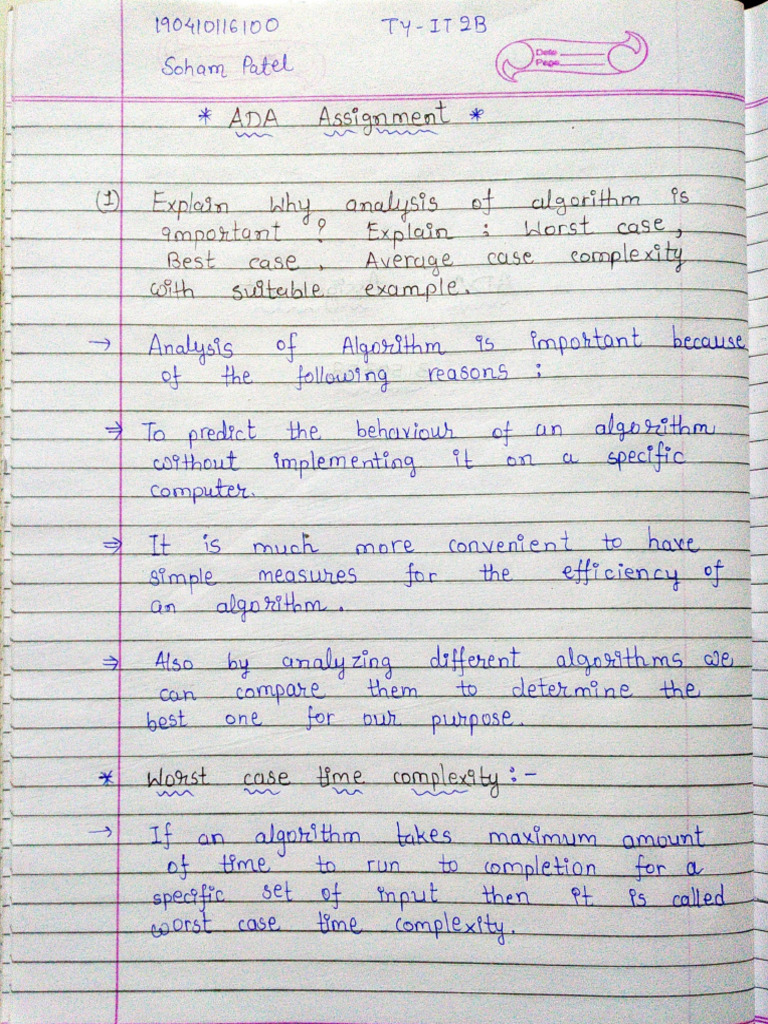 190410116100 TY-IT 2B
Soham Patel
Date
Page
* ADA Assignment *
(1) Explain Why analysis of algorithm is
important ? Explain : Worst case,
Best case, Average case complexity
with suitable example.
→ Analysis of Algorithm is important because
of the following reasons :
⇒ To predict the behaviour of an algorithm
without implementing it on a specific
computer.
⇒ It is much more convenient to have
simple measures for the efficiency of
an algorithm.
⇒ Also by analyzing different algorithms we
can compare them to determine the
best one for our purpose.
* Worst case time complexity :-
→ If an algorithm takes maximum amount
of time to run to completion for a
specific set of input then it is called
worst case time complexity.